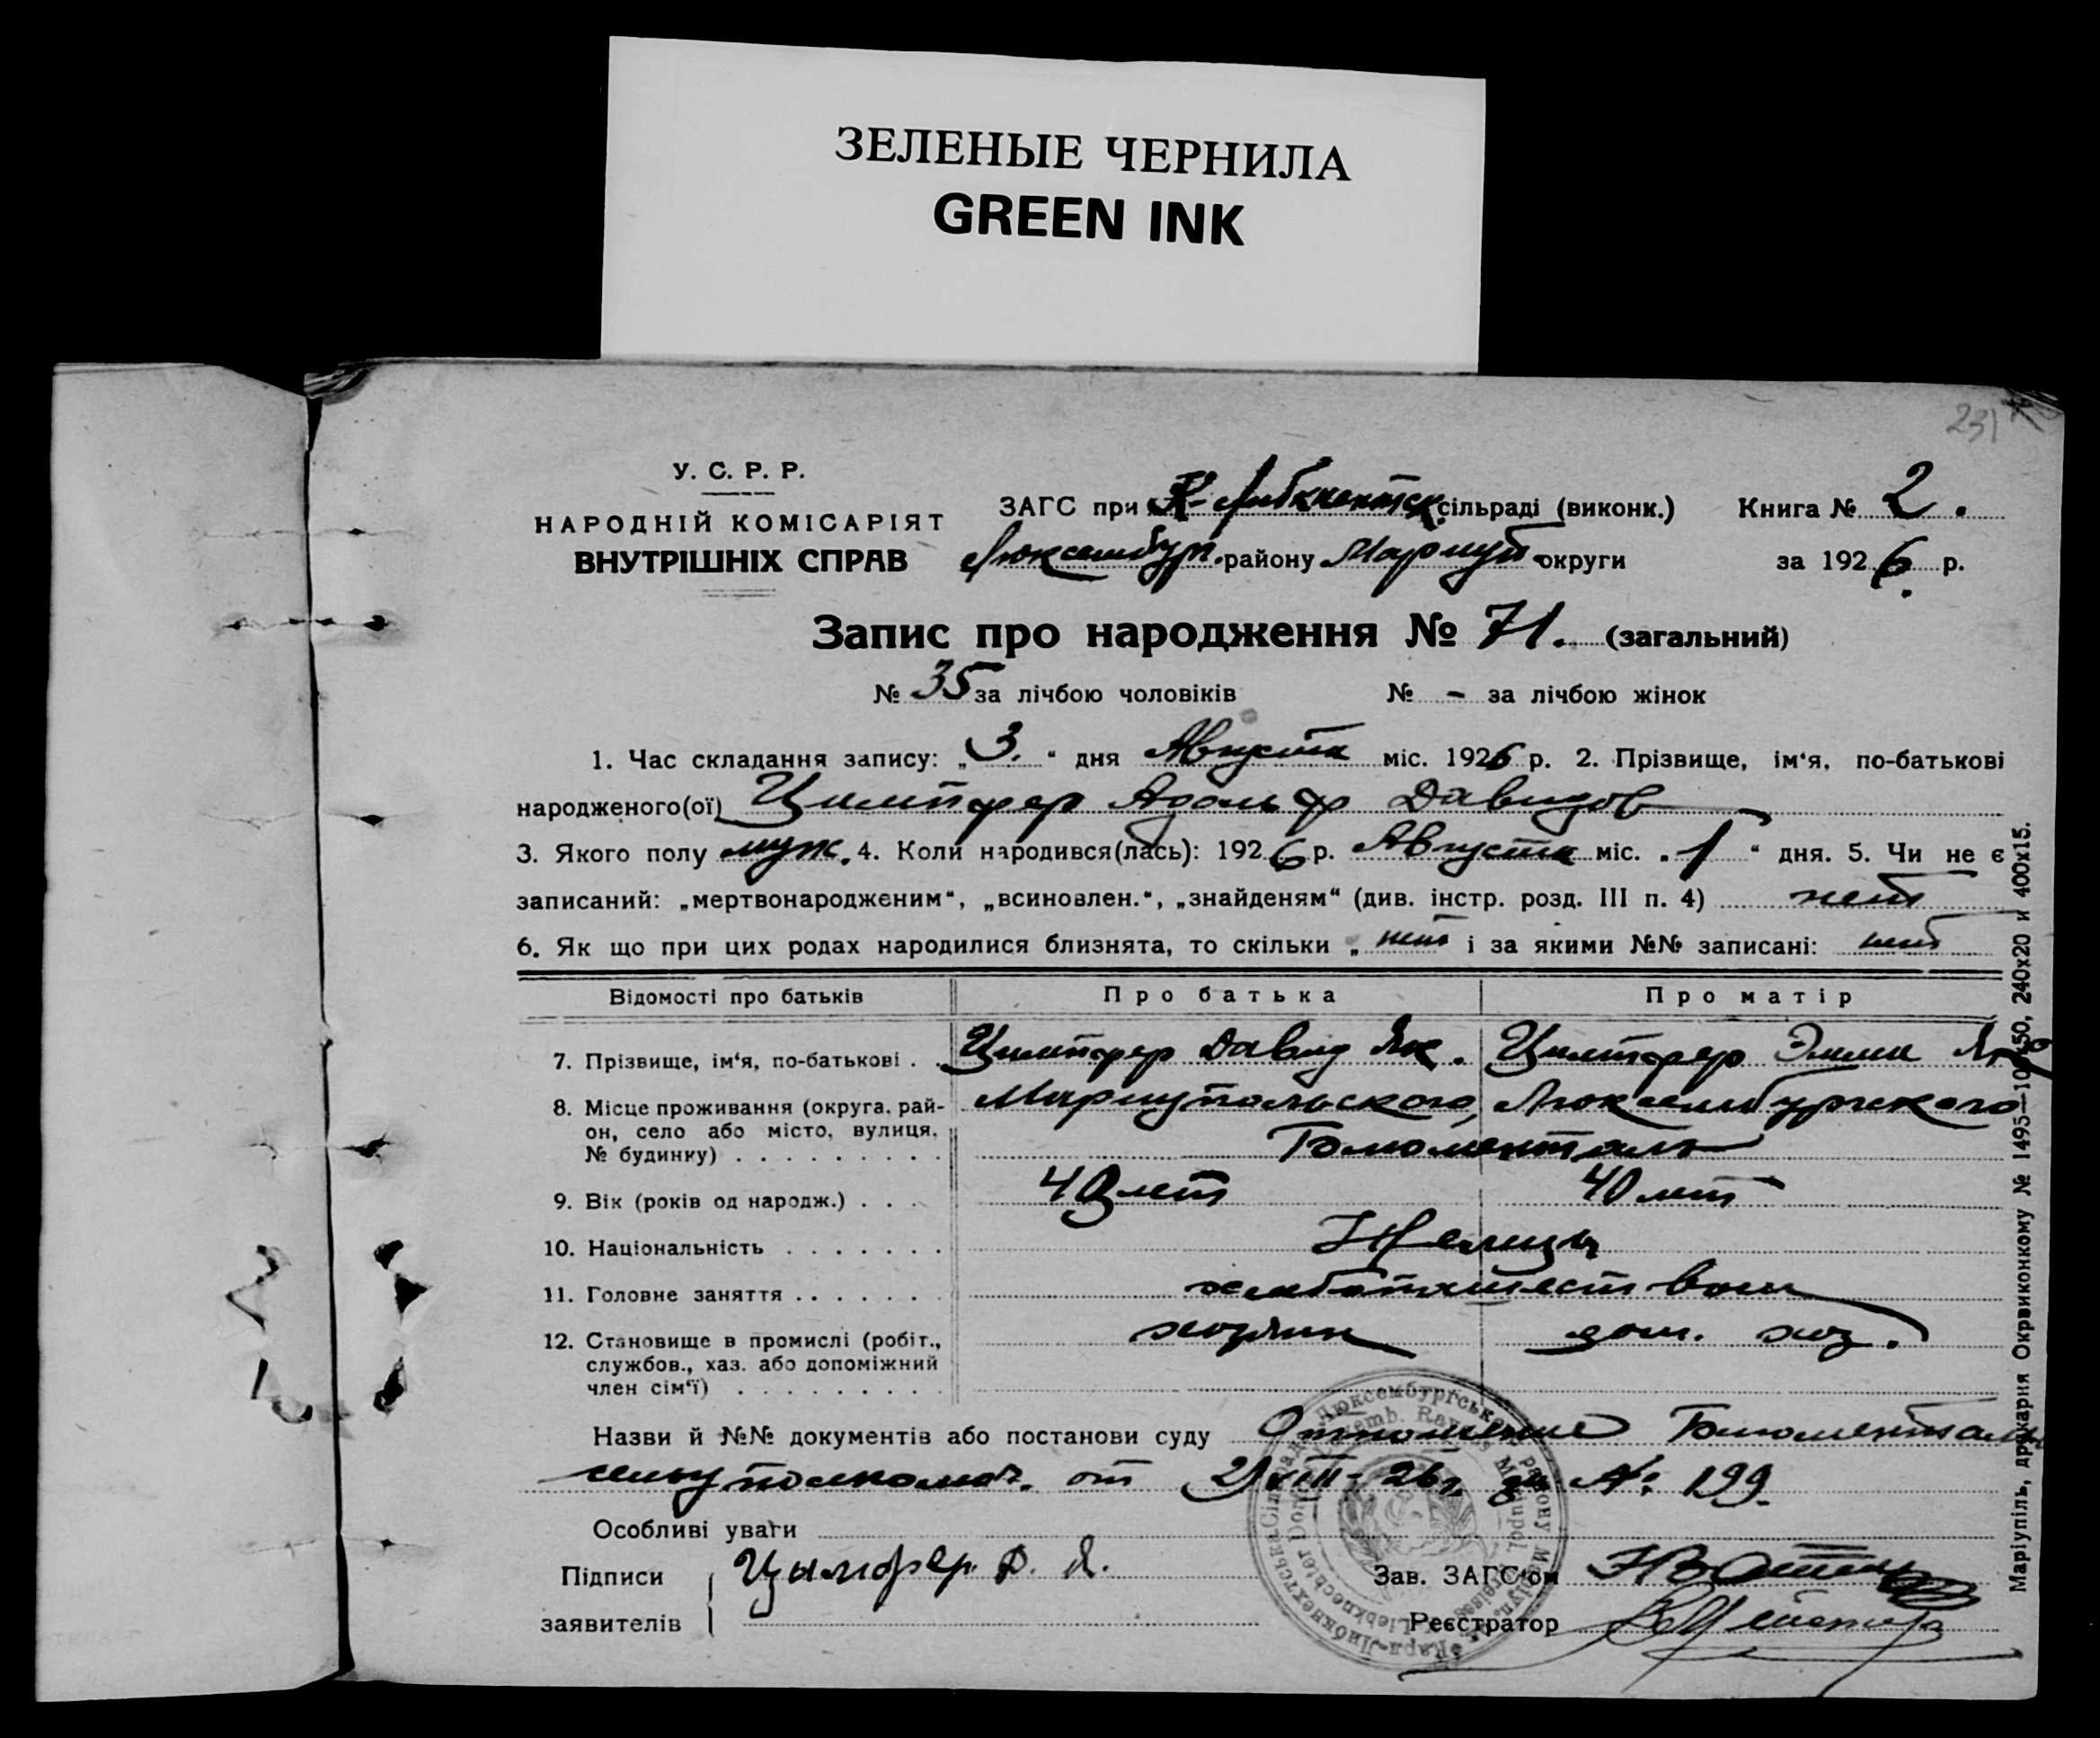 ЗЕЛЕНЫЕ ЧЕРНИЛА
GREEN INK
231
У. С. Р. Р.
НАРОДНІЙ КОМІСАРІЯТ
ВНУТРІШНІХ СПРАВ
ЗАГС при К-Либкнехтск сільраді (виконк.) Книга № 2.
Люксембур. району Мариуп округи за 1926 р.
Запис про народження № 71. (загальний)
№ 35 за лічбою чоловіків № - за лічбою жінок
1. Час складання запису: „3.“ дня Августа міс. 1926 р. 2. Прізвище, ім‘я, по-батькові
народженого(ої) Цимпфер Адольф Давидов
3. Якого полу муж. 4. Коли народився(лась): 1926 р. Августа міс. „1“ дня. 5. Чи не є
записаний: „мертвонародженим“, „всиновлен.“, „знайденям“ (див. інстр. розд. III п. 4) нет
6. Як що при цих родах народилися близнята, то скільки „ нет і за якими №№ записані: нет
Відомості про батьків Про батька Про матір
7. Прізвище, ім‘я, по-батькові . . Цимпфер Давид Як. Цимпфер Эмма
8. Місце проживання (округа, рай- Мариупольского, Люксембургского
он, село або місто, вулиця,
№ будинку) . . . . . . . . . Блюменталь
9. Вік (років од народж.) . . . 40 лет 40 лет
10. Національність . . . . . . . Немцы
11. Головне заняття . . . . . . . хлебопашеством
12. Становище в промислі (робіт., хозяин дом. хоз.
службов., хаз. або допоміжний
член сім‘ї) . . . . . . . . .
Назви й №№ документів або постанови суду Отношение Блюментальс
сельуполномоч. от 2/VIII-26 г. за №: 199.
Особливі уваги
Підписи Цымпфер. Д. Я. Зав. ЗАГС‘ом
заявителів Реєстратор
Маріупіль, друкарня Окрвиконкому № 1495—10х50, 240х20 и 400х15.